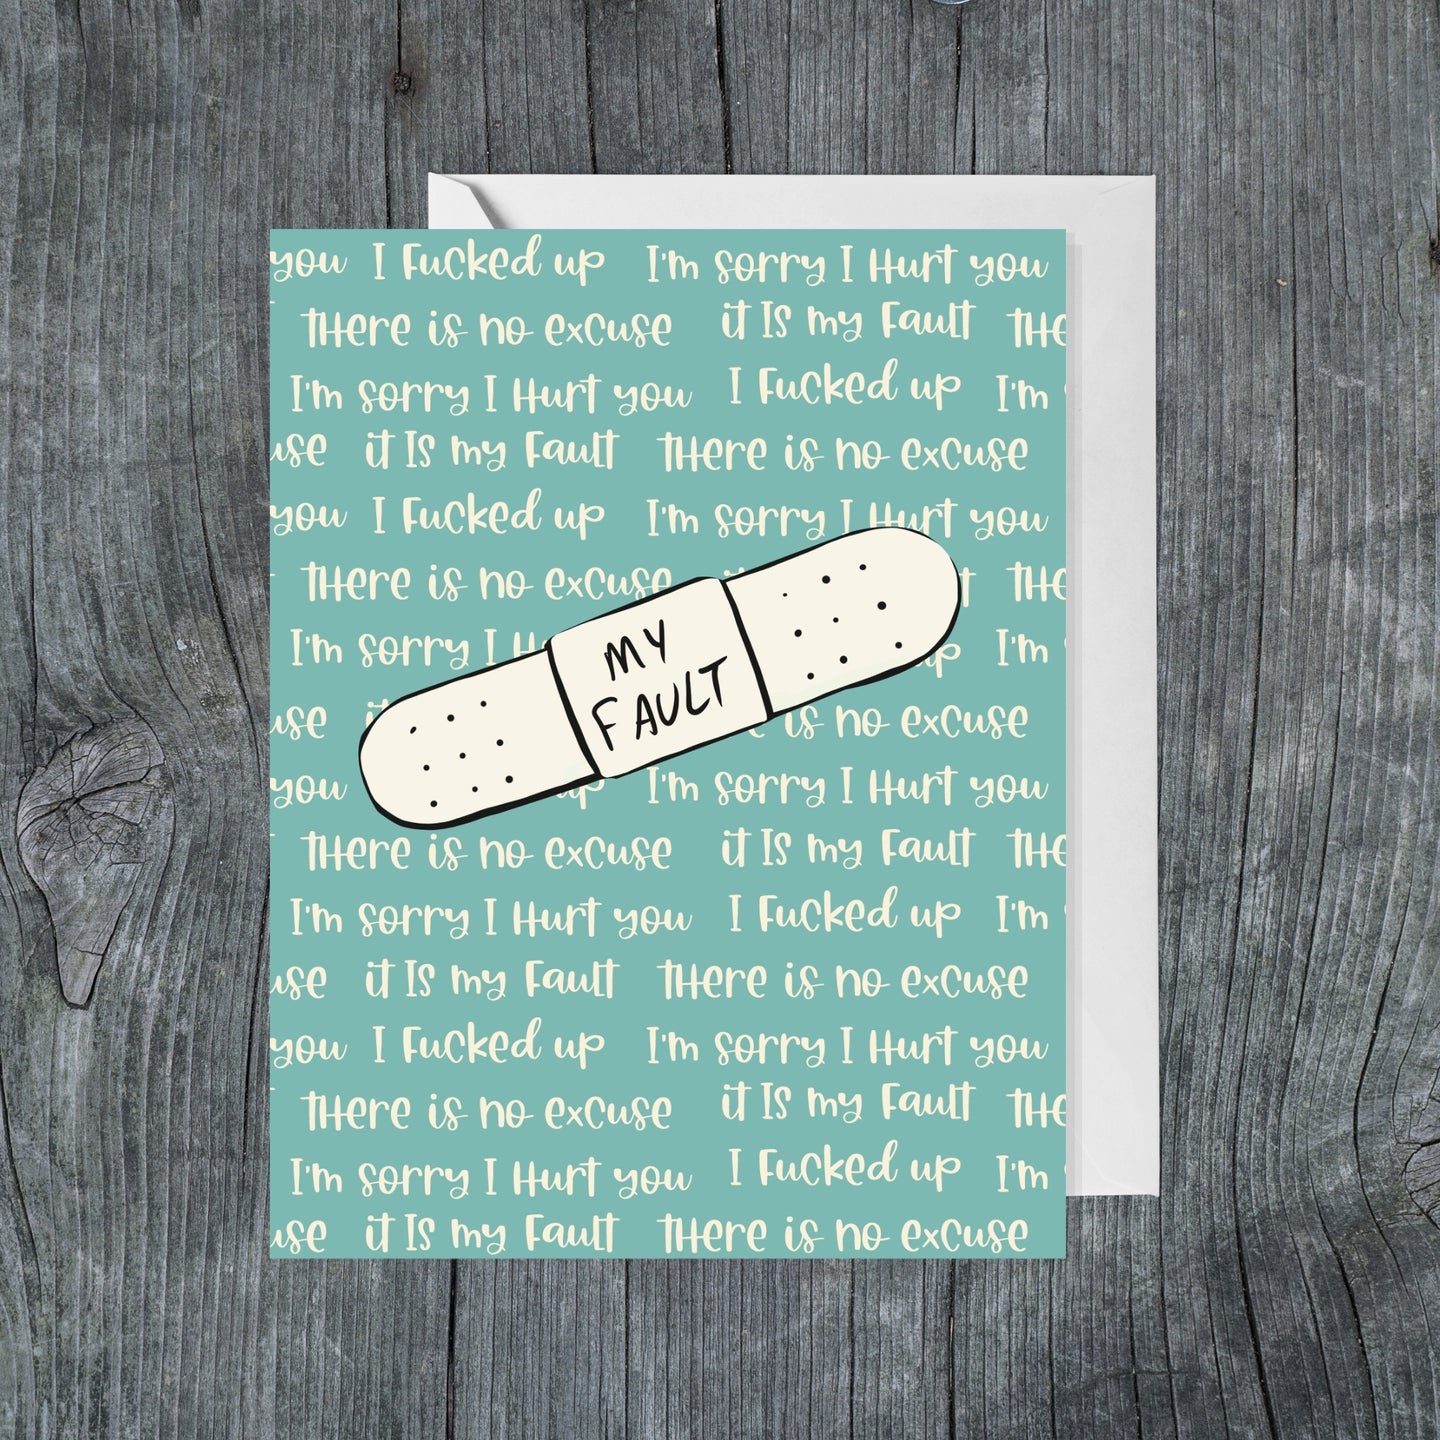 you I Fucked up I'm sorry I Hurt you
THere is no excuse it Is my Fault THe
I'm sorry I Hurt you I Fucked up I'm
use it Is my Fault THere is no excuse
you I Fucked up I'm sorry I Hurt you
THere is no excuse THe
I'm sorry I I'm
MY
FAULT
use is no excuse
you up I'm sorry I Hurt you
THere is no excuse it Is my Fault THe
I'm sorry I Hurt you I Fucked up I'm
use it Is my Fault THere is no excuse
you I Fucked up I'm sorry I Hurt you
THere is no excuse it Is my Fault THe
I'm sorry I Hurt you I Fucked up I'm
use it Is my Fault THere is no excuse